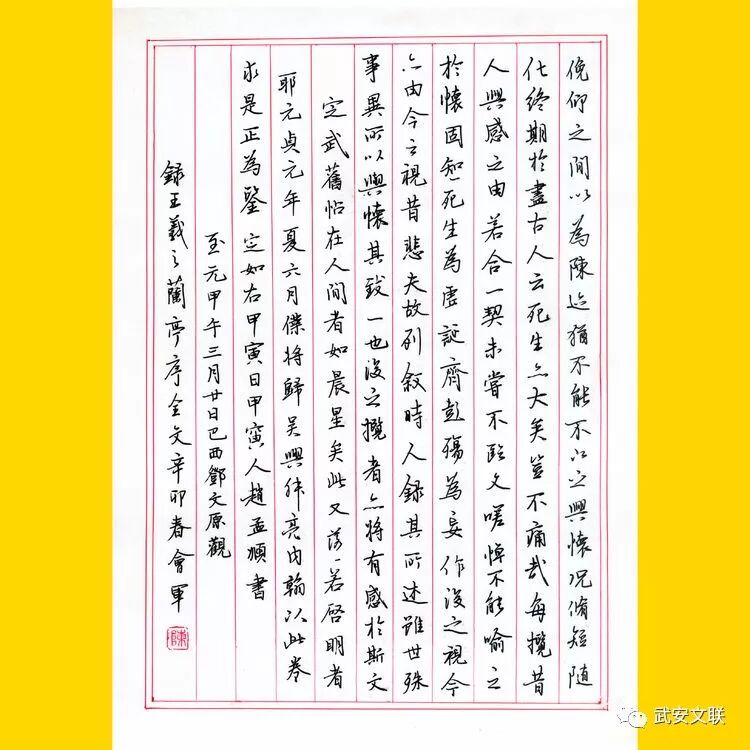 俛仰之間以為陳迹猶不能不以之興懷況脩短隨
化終期於盡古人云死生亦大矣豈不痛哉每攬昔
人興感之由若合一契未嘗不臨文嗟悼不能喻之
於懷固知死生為虛誕齊彭殤為妄作後之視今
亦由今之視昔悲夫故列敘時人錄其所述雖世殊
事異所以興懷其致一也後之攬者亦將有感於斯文
定武舊帖在人間者如晨星矣此又落〻若啓明者
耶元貞元年夏六月僕將歸吳興叔亮內翰以此卷
求是正為鑒定如右甲寅日甲寅人趙孟頫書
至元甲午三月廿日巴西鄧文原觀
錄王羲之蘭亭序全文辛卯春會軍
陳
武安文联